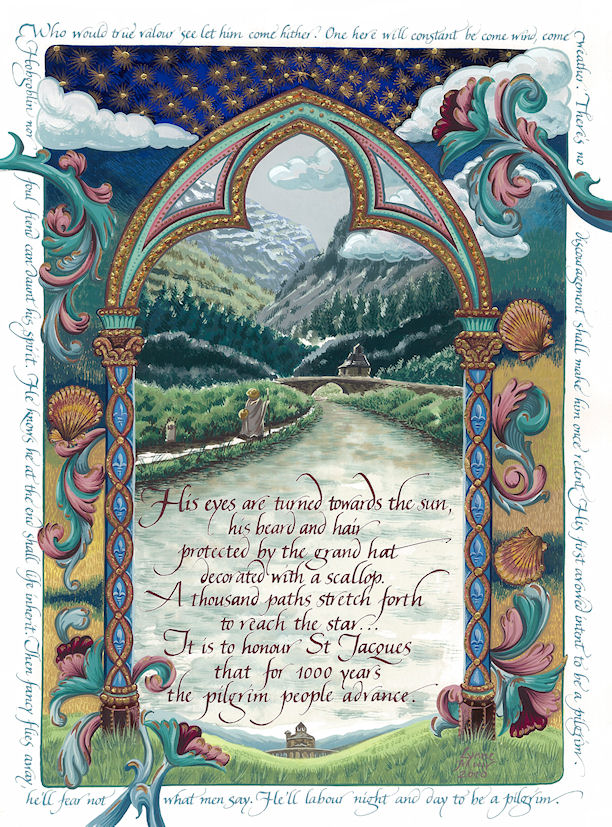 Who would true valour see let him come hither. One here will constant be come wind, come
weather. There's no discouragement shall make him once relent His first avowed intent to be a pilgrim.
Hobgoblin nor foul fiend can daunt his spirit. He knows he at the end shall life inherit. Then fancy flies away,
he'll fear not what men say. He'll labour night and day to be a pilgrim.
His eyes are turned towards the sun,
his beard and hair
protected by the grand hat
decorated with a scallop.
A thousand paths stretch forth
to reach the star...
It is to honour St Jacques
that for 1000 years
the pilgrim people advance.
2010